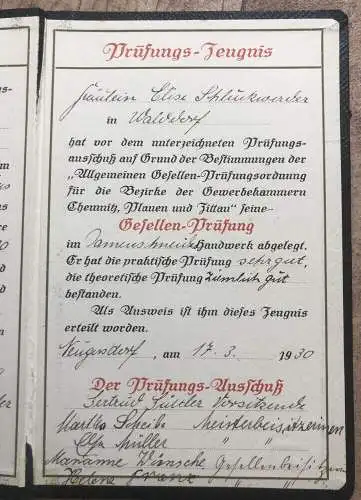 Prüfungs-Zeugnis
Fräulein Elise Schluckwerder
in Walddorf
hat vor dem unterzeichneten Prüfungs-
ausschuß auf Grund der Bestimmungen der
„Allgemeinen Gesellen-Prüfungsordnung
für die Bezirke der Gewerbekammern
Chemnitz, Plauen und Zittau“ seine
Gesellen-Prüfung
im Damenschneider Handwerk abgelegt.
Er hat die praktische Prüfung sehr gut,
die theoretische Prüfung ziemlich gut
bestanden.
Als Ausweis ist ihm dieses Zeugnis
erteilt worden.
Neugersdorf, am 17.3. 1930
Der Prüfungs-Ausschuß
Gertrud Vorsitzende
Martha Scheibe Meisterbeisitzerinnen
Elsa Müller " "
Marianne Wünsche Gesellenbeisitzerinnen
Helene Franz " "